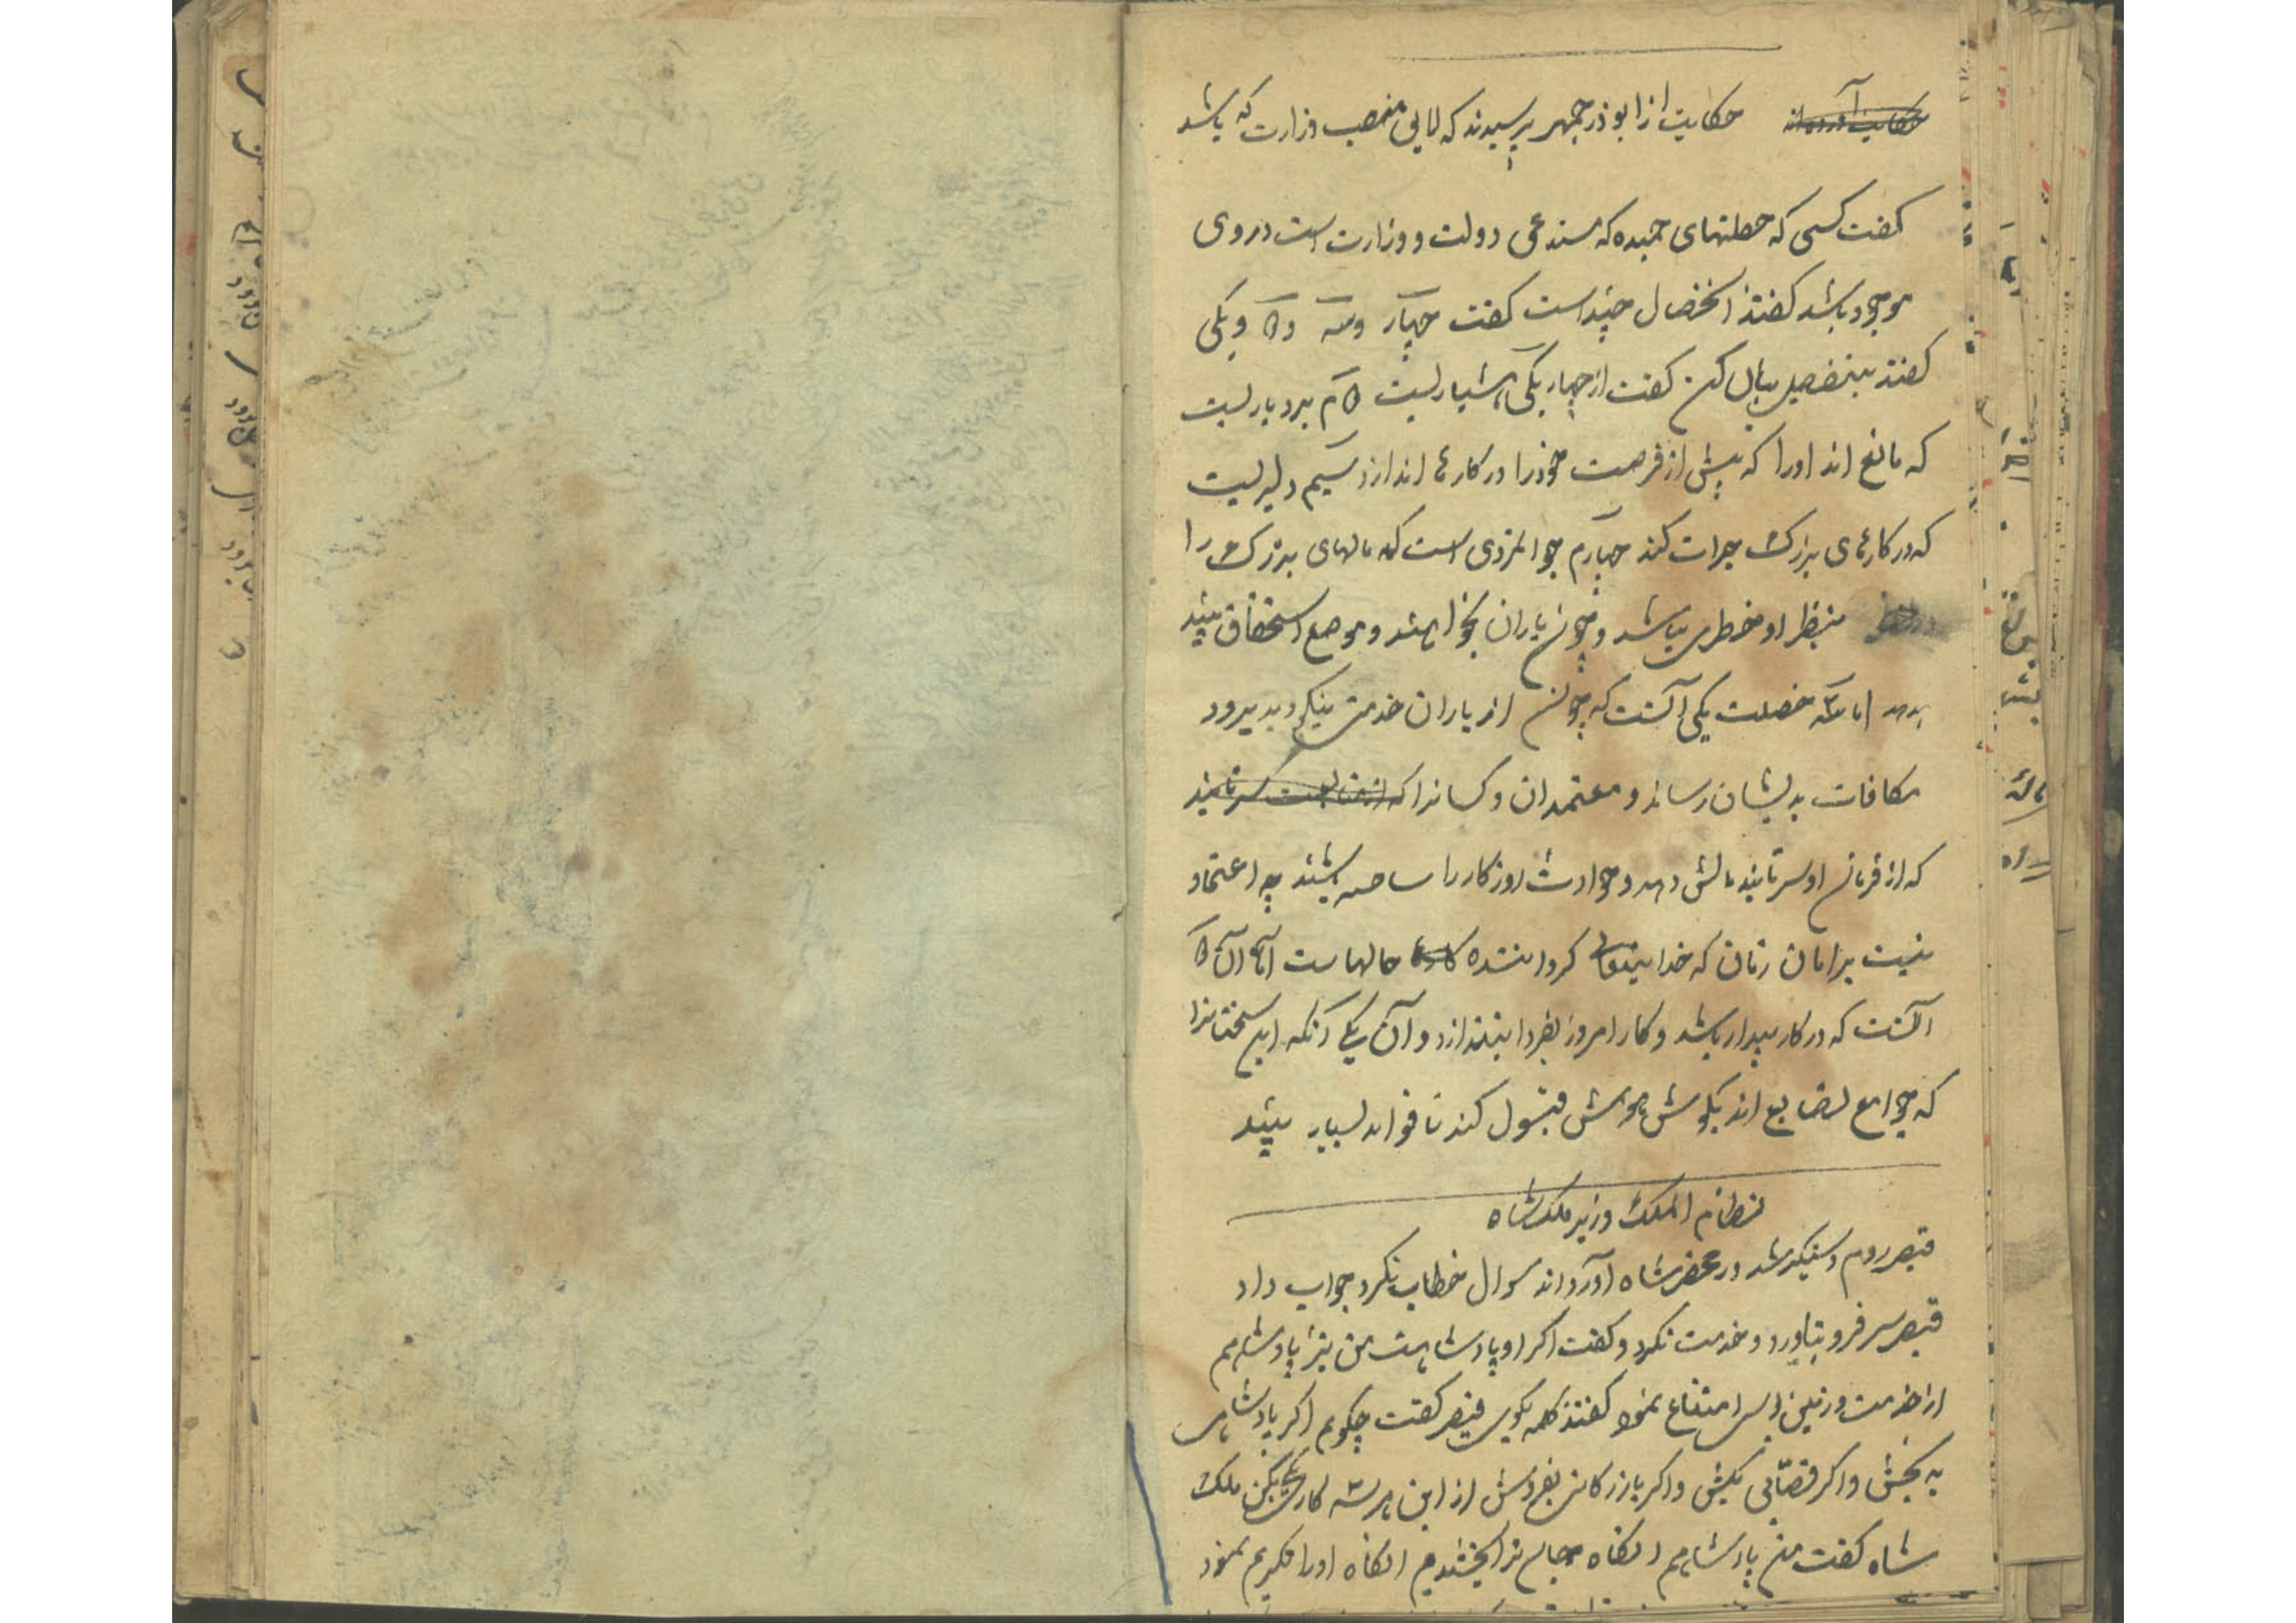 حکایت از ابوذرجمهر پرسیدند که لایق منصب وزارت که باشد
کفت کسی که خصلتهای حمیده که مستدعی دولت و وزارت است در وی
موجود باشد کفتند آنخصال چند است کفت چهار و سه و ۲ و یکی
کفتند بتفصیل بیان کن کفت از چهار یکی هشیاریست ۲م بردباریست
که مانع اند اورا که پیش از فرصت خود را در کارها اندازد سیم دلیریست
که در کارهای بزرک جرات کند چهارم جوانمردی است که مالهای بزرک را
بنظر او خطری نباشد و چون یاران بخواهند و موضع استحقاق بیند
بدهد اما سه خصلت یکی آنست که چون از یاران خدمت نیکو بدید زود
مکافات بدیشان رساند و معتمدان و کسانرا که از متابعت سر تابند
که از فرمان او سر تابند مالش دهد و حوادث روزکار را ساخته باشد چه اعتماد
نیست بر امان زمان که خدایتعالی کرداننده حالهاست اما آن ۲
آنست که در کار بیدار باشد و کار امروز بفردا نیندازد و آن یکی آنکه این سخنانرا
که جوامع نصایح اند بکوش هوش قبول کند تا فواید بسیار بیند
نظام الملک وزیر ملکشاه
قیصر روم دستکیر شد در محضر شاه آوردند سوال خطاب نکرد جواب داد
قیصر سر فرو نیاورد و خدمت نکرد و کفت اکر او پادشاهست من نیز پادشاهم
از خدمت و زمین بوسی امتناع نمود کفتند کلمه بکوی قیصر کفت چکویم اکر پادشاهی
به بخش و اکر قصّابی بکش و اکر بازرکانی بفروش از این هر سه کار یکی بکن ملک
شاه کفت من پادشاهم آنکاه جان ترا بخشیدم آنکاه اورا تکریم نمود